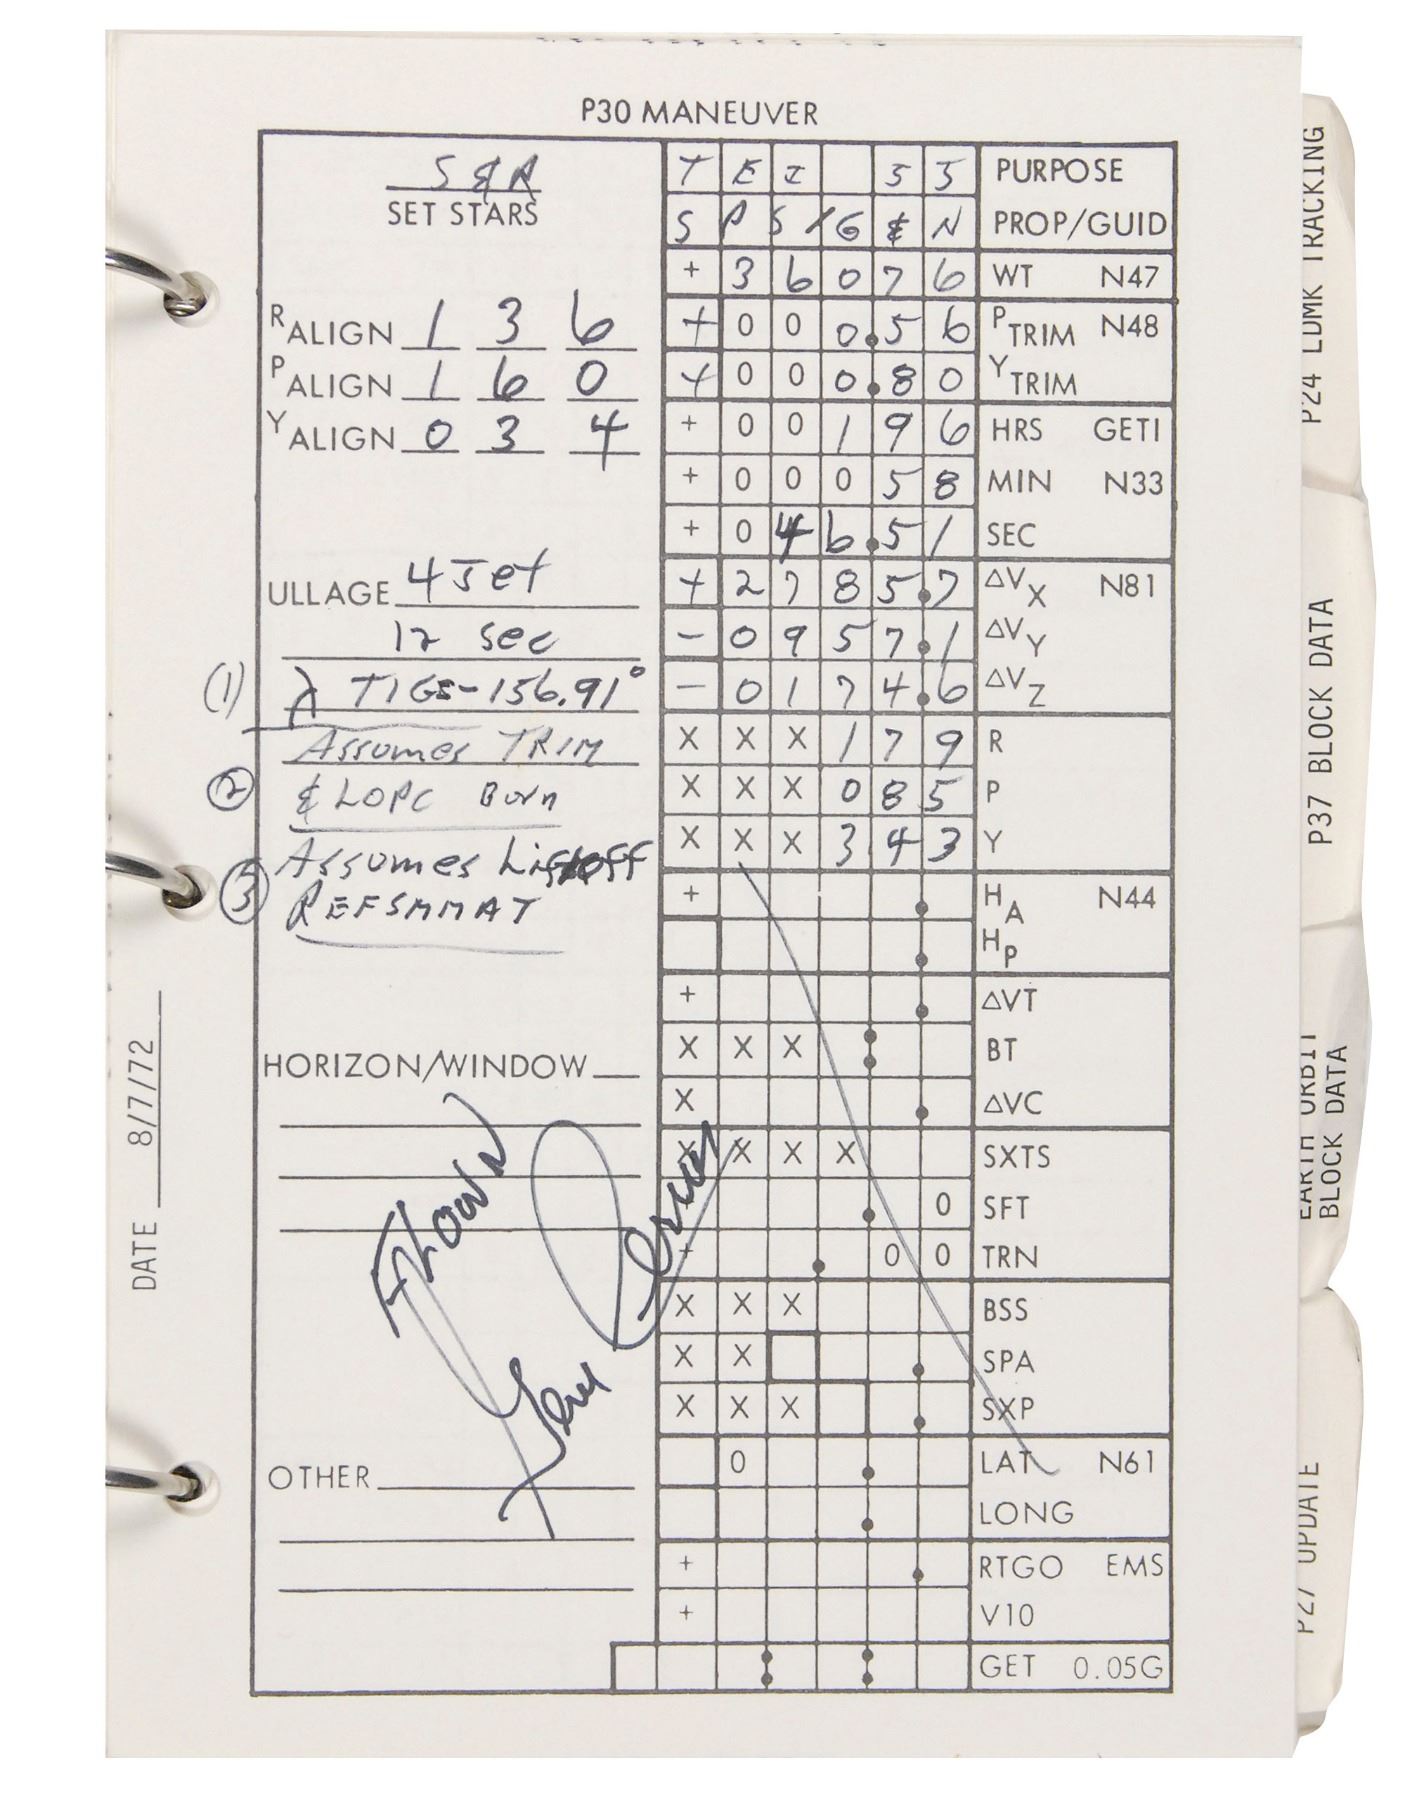 P30 MANEUVER
S & R
SET STARS
R ALIGN 1 3 6
P ALIGN 1 6 0
Y ALIGN 0 3 4
ULLAGE 4 Jet
12 sec
(1) λ TIG=-156.91°
Assumes TRIM
(2) & LOPC Burn
Assumes Liftoff
(3) REFSMMAT
HORIZON/WINDOW
OTHER
T E I 5 5 PURPOSE
S P S / G & N PROP/GUID
+ 3 6 0 7 6 WT N47
+ 0 0 0.5 6 P TRIM N48
+ 0 0 0.8 0 Y TRIM
+ 0 0 1 9 6 HRS GETI
+ 0 0 0 5 8 MIN N33
+ 0 4 6.5 1 SEC
+ 2 7 8 5.7 ΔVX N81
- 0 9 5 7.1 ΔVY
- 0 1 7 4.6 ΔVZ
X X X 1 7 9 R
X X X 0 8 5 P
X X X 3 4 3 Y
+ . HA N44
. HP
+ . ΔVT
X X X : BT
X . ΔVC
X X X X SXTS
+ . 0 SFT
+ . 0 0 TRN
X X X BSS
X X . SPA
X X X . SXP
0 . LAT N61
. LONG
+ . RTGO EMS
+ V10
: : GET 0.05G
Flown
Gene Cernan
DATE 8/7/72
P24 LDMK TRACKING
P37 BLOCK DATA
EARTH ORBIT
BLOCK DATA
P27 UPDATE